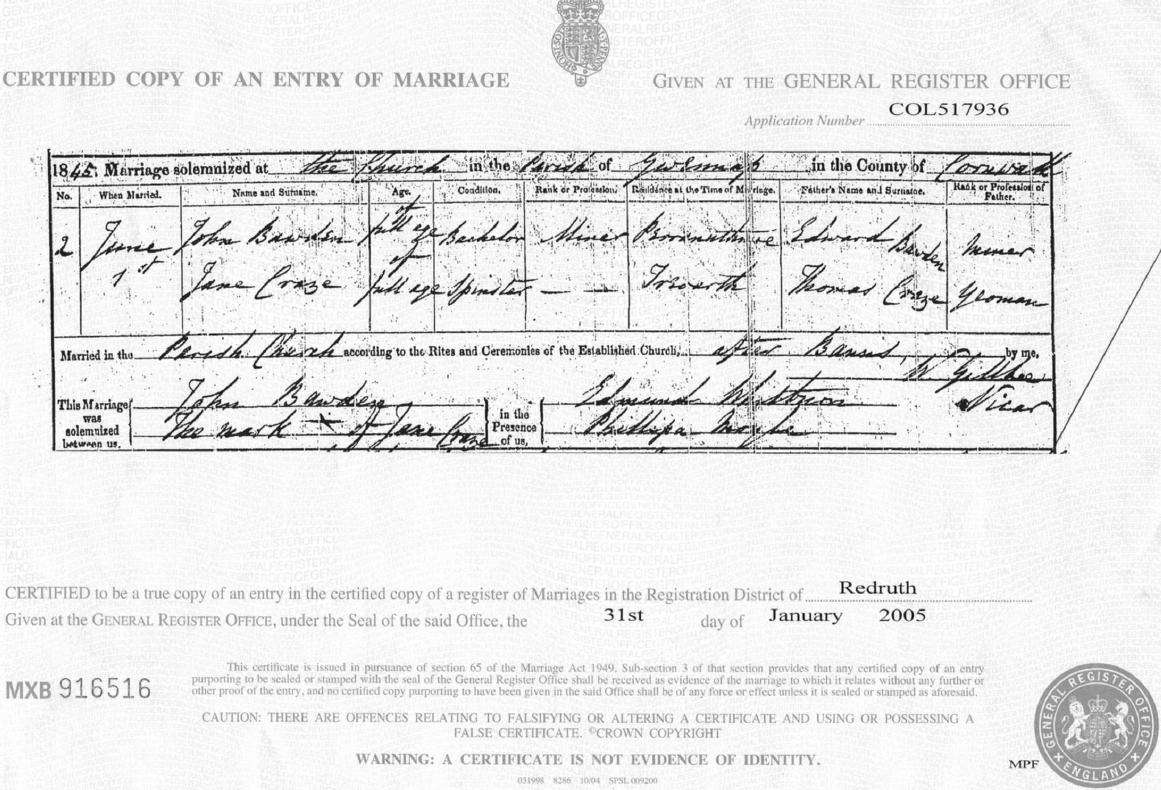 CERTIFIED COPY OF AN ENTRY OF MARRIAGE
GIVEN AT THE GENERAL REGISTER OFFICE
Application Number COL517936
1845. Marriage solemnized at the Church in the Parish of Gwennap in the County of Cornwall
No. When Married. Name and Surname. Age. Condition. Rank or Profession. Residence at the Time of Marriage. Father's Name and Surname. Rank or Profession of Father.
2 June 1st John Bawden of full age Bachelor Miner Edward Bawden Miner
Jane Craze of full age Spinster — — Thomas Craze Yeoman
Married in the Parish Church according to the Rites and Ceremonies of the Established Church, after Banns, by me,
W Vicar
This Marriage was solemnized between us, John Bawden
The mark X of Jane Craze
in the Presence of us, Edmund
Phillipa
CERTIFIED to be a true copy of an entry in the certified copy of a register of Marriages in the Registration District of Redruth
Given at the GENERAL REGISTER OFFICE, under the Seal of the said Office, the 31st day of January 2005
MXB 916516
This certificate is issued in pursuance of section 65 of the Marriage Act 1949. Sub-section 3 of that section provides that any certified copy of an entry
purporting to be sealed or stamped with the seal of the General Register Office shall be received as evidence of the marriage to which it relates without any further or
other proof of the entry, and no certified copy purporting to have been given in the said Office shall be of any force or effect unless it is sealed or stamped as aforesaid.
CAUTION: THERE ARE OFFENCES RELATING TO FALSIFYING OR ALTERING A CERTIFICATE AND USING OR POSSESSING A
FALSE CERTIFICATE. ©CROWN COPYRIGHT
WARNING: A CERTIFICATE IS NOT EVIDENCE OF IDENTITY.
031998 8286 10/04 SPSL 009200
MPF
GENERAL REGISTER OFFICE
ENGLAND